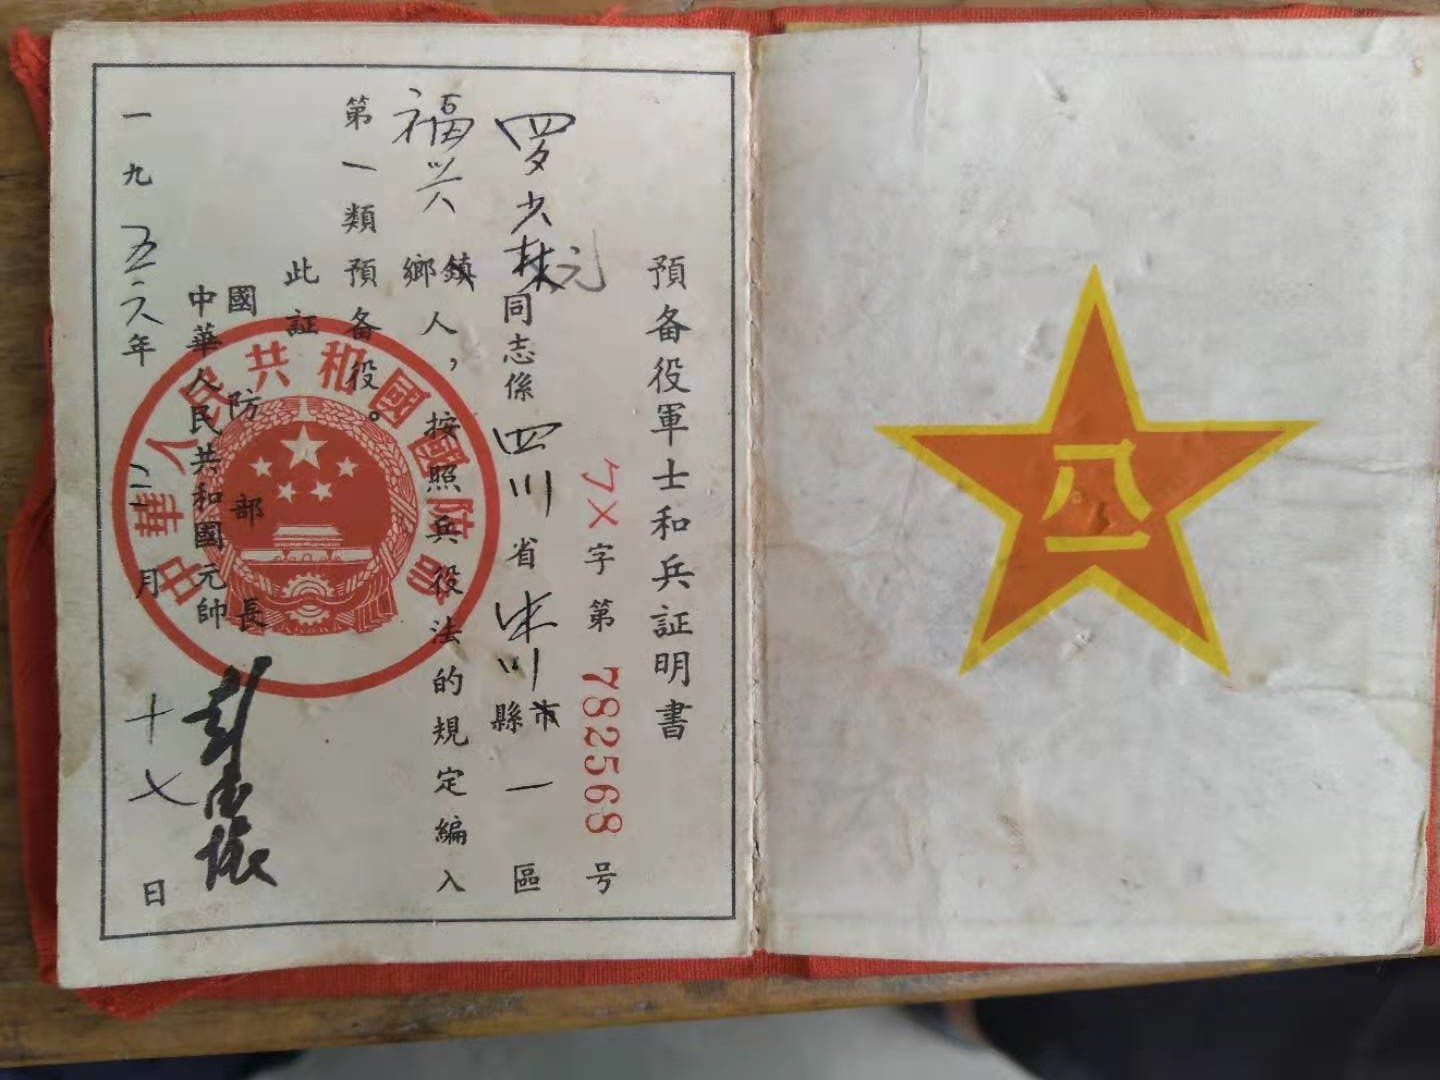 預备役軍士和兵証明書
字第782568号
罗少林元同志係四川省米川縣市一區
福兴鄉鎮人，按照兵役法的規定編入
第一類預备役。
此証
國防部長
中華人民共和國元帥 彭德懷
一九五六年二月十七日
中華人民共和國國防部
八一